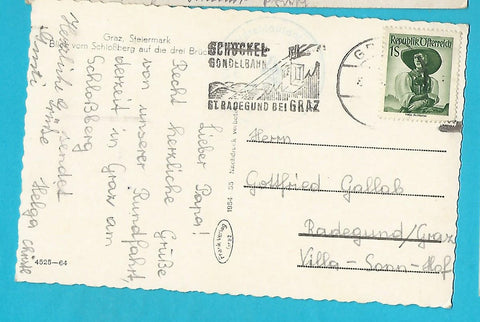 Graz, Steiermark
Blick vom Schloßberg auf die drei Brücken
SCHÖCKEL
GONDELBAHN
ST. RADEGUND BEI GRAZ
Republik Österreich
1S
Lieber Papa!
Recht herzliche Grüße
von unserer Rundfahrt,
derzeit in Graz am
Schloßberg
Herzliche Grüße Helga
Herrn
Gottfried Gallob
Radegund/Graz
Villa-Sonn-Hof
1954 55 Nachdruck verboten
4525-64